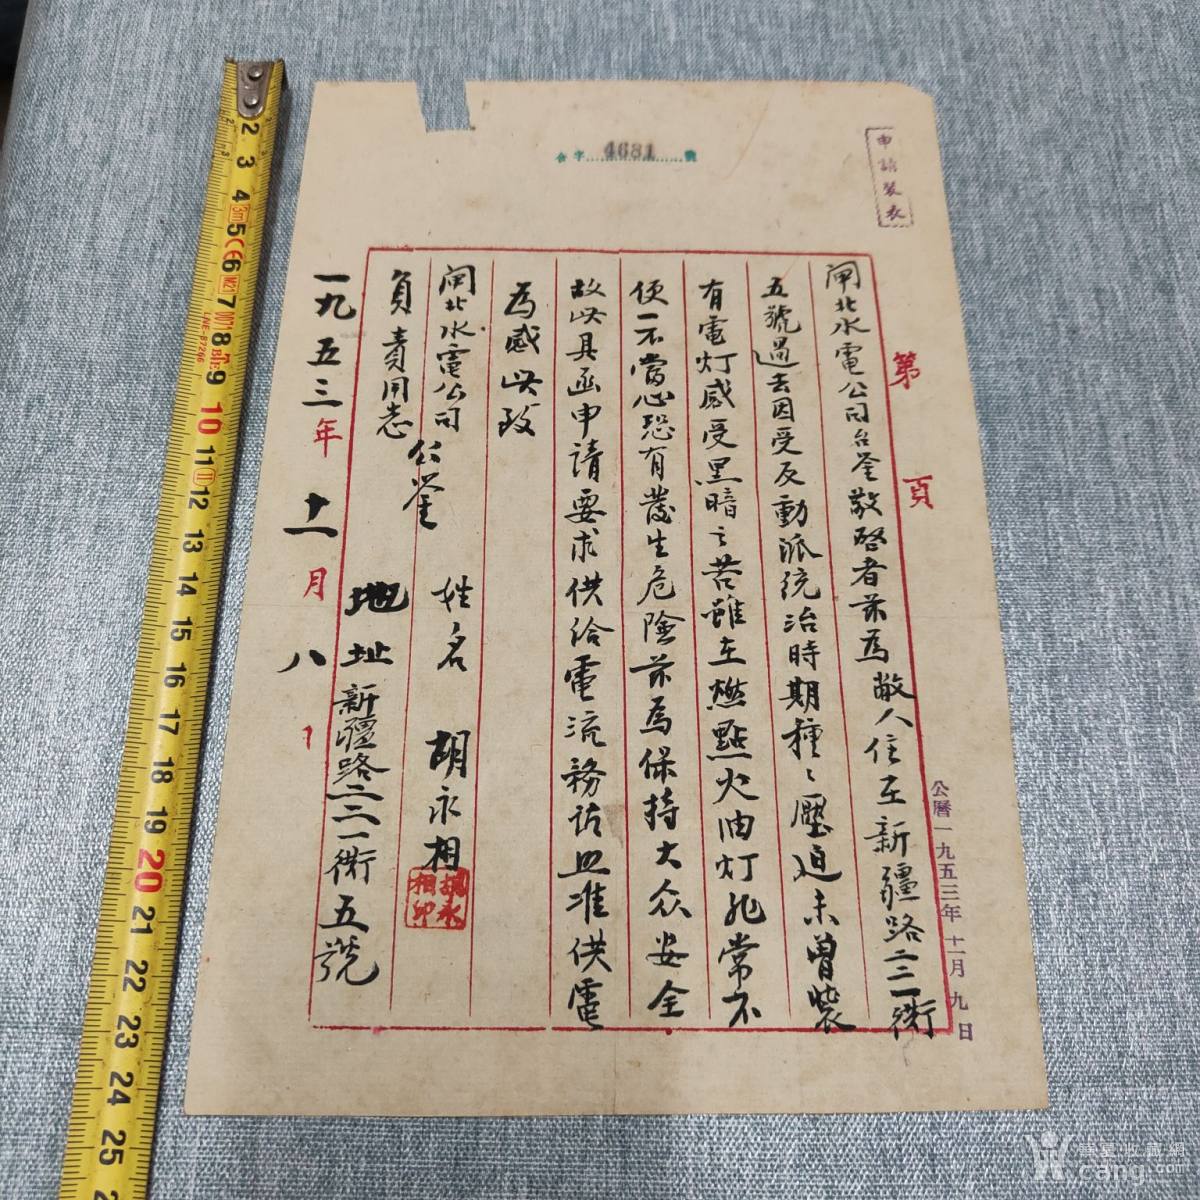 合字4681號
申請裝表
第 頁
公曆一九五三年十一月九日
闸北水電公司台鉴敬啓者茲為敝人住在新疆路二二一衖
五號過去因受反動派统治時期種々壓迫未曾裝
有電灯感受黑暗之苦雖在燃點火油灯非常不
便一不當心恐有發生危險茲為保持大众安全
故此具函申請要求供给電流務祈 准供電
為感此致
闸北水電公司
負責同志 公鉴
姓名 胡永相
胡永相印
地址 新疆路二二一衖五號
一九五三年十一月八日
华夏收藏网
cang.com